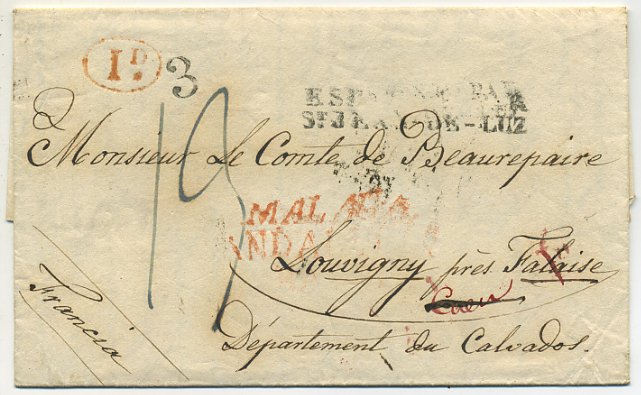 1D.
3
ESPAGNE PAR
ST JEAN-DE-LUZ
Monsieur Le Comte de Beaurepaire
19
MALAGA
ANDA
Louvigny près Falaise
Caen
Francia
Département du Calvados.